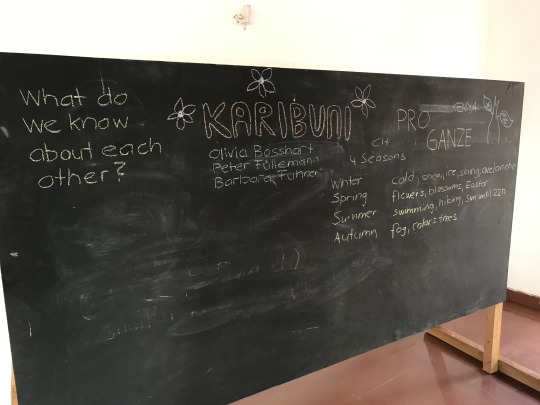 What do
we know
about each
other?
KARIBUNI
Olivia Bosshart
Peter Füllemann
Barbara Führer
PRO
GANZE
CH
4 Seasons
Winter cold, snow, ice, skiing, avalanches
Spring flowers, blossoms, Easter
Summer swimming, hiking, sun until 22h
Autumn fog, colors trees